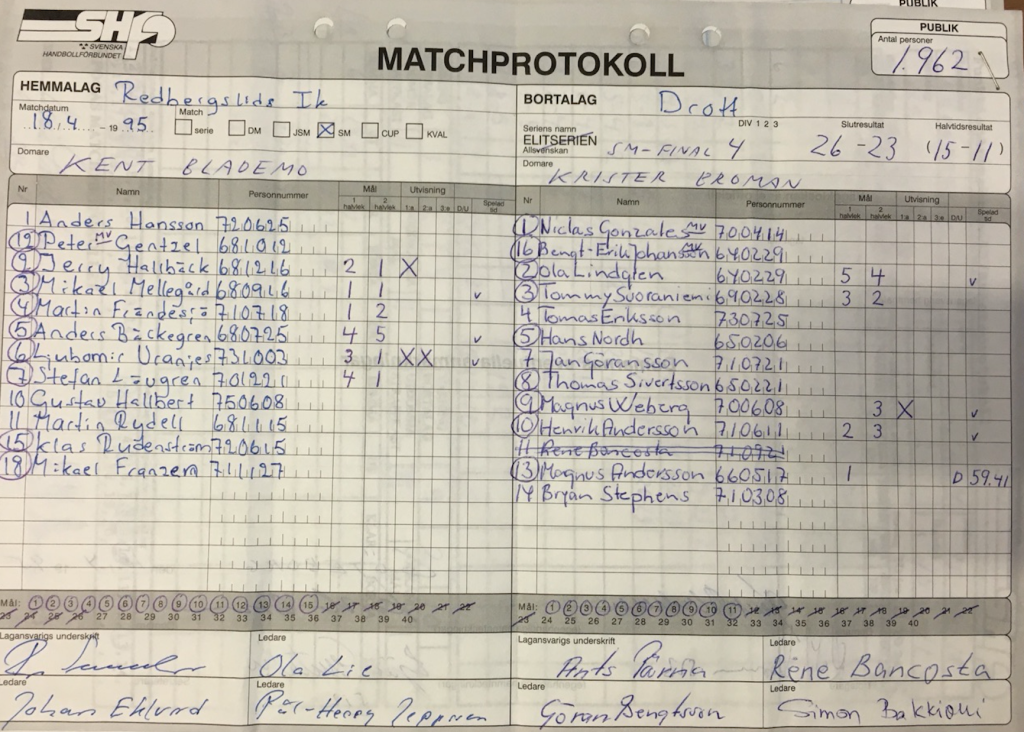 PUBLIK
SHF
SVENSKA
HANDBOLLFÖRBUNDET
MATCHPROTOKOLL
PUBLIK
Antal personer
1.962
HEMMALAG Redbergslids Ik
Matchdatum
18.4 - 19 95
Match
serie DM JSM SM CUP KVAL
Domare
KENT BLADEMO
BORTALAG Drott
Seriens namn
ELITSERIEN
Allsvenskan
SM-FINAL 4
DIV 1 2 3
Slutresultat
26-23
Halvtidsresultat
(15-11)
Domare
KRISTER BROMAN
Nr Namn Personnummer Mål Utvisning
1 halvlek 2 halvlek 1:a 2:a 3:e D/U Spelad tid
1 Anders Hansson 720625
12 Peter MV Gentzel 681012
2 Jerry Hallbäck 681216 2 1 X
3 Mikael Mellegård 680916 1 1 v
4 Martin Frändesjö 710718 1 2
5 Anders Bäckegren 680725 4 5 v
6 Ljubomir Vranjes 731003 3 1 X X v
7 Stefan Lövgren 701221 4 1
10 Gustav Hallbert 750608
11 Martin Rydell 681115
15 Klas Rudenström 720615
18 Mikael Franzén 711127
Nr Namn Personnummer Mål Utvisning
1 halvlek 2 halvlek 1:a 2:a 3:e D/U Spelad tid
1 Niclas Gonzales MV 700414
16 Bengt-Erik Johansson MV 640229
2 Ola Lindgren 640229 5 4 v
3 Tommy Suoraniemi 690228 3 2
4 Tomas Eriksson 730725
5 Hans Nordh 650206
7 Jan Göransson 710721
8 Thomas Sivertsson 650221
9 Magnus Weberg 700608 3 X v
10 Henrik Andersson 710611 2 3 v
11 Rene Bancosta 710921
13 Magnus Andersson 660517 1 D 59.41
14 Bryan Stephens 710308
Mål: 1 2 3 4 5 6 7 8 9 10 11 12 13 14 15 16 17 18 19 20 21 22
23 24 25 26 27 28 29 30 31 32 33 34 35 36 37 38 39 40
Mål: 1 2 3 4 5 6 7 8 9 10 11 12 13 14 15 16 17 18 19 20 21 22
23 24 25 26 27 28 29 30 31 32 33 34 35 36 37 38 39 40
Lagansvarigs underskrift
Ledare
Ola Lie
Ledare
Johan Eklund
Ledare
Pär-Henry Jeppsson
Lagansvarigs underskrift
Ants Pärna
Ledare
Réne Bancosta
Ledare
Göran Bengtsson
Ledare
Simon Bakkioui